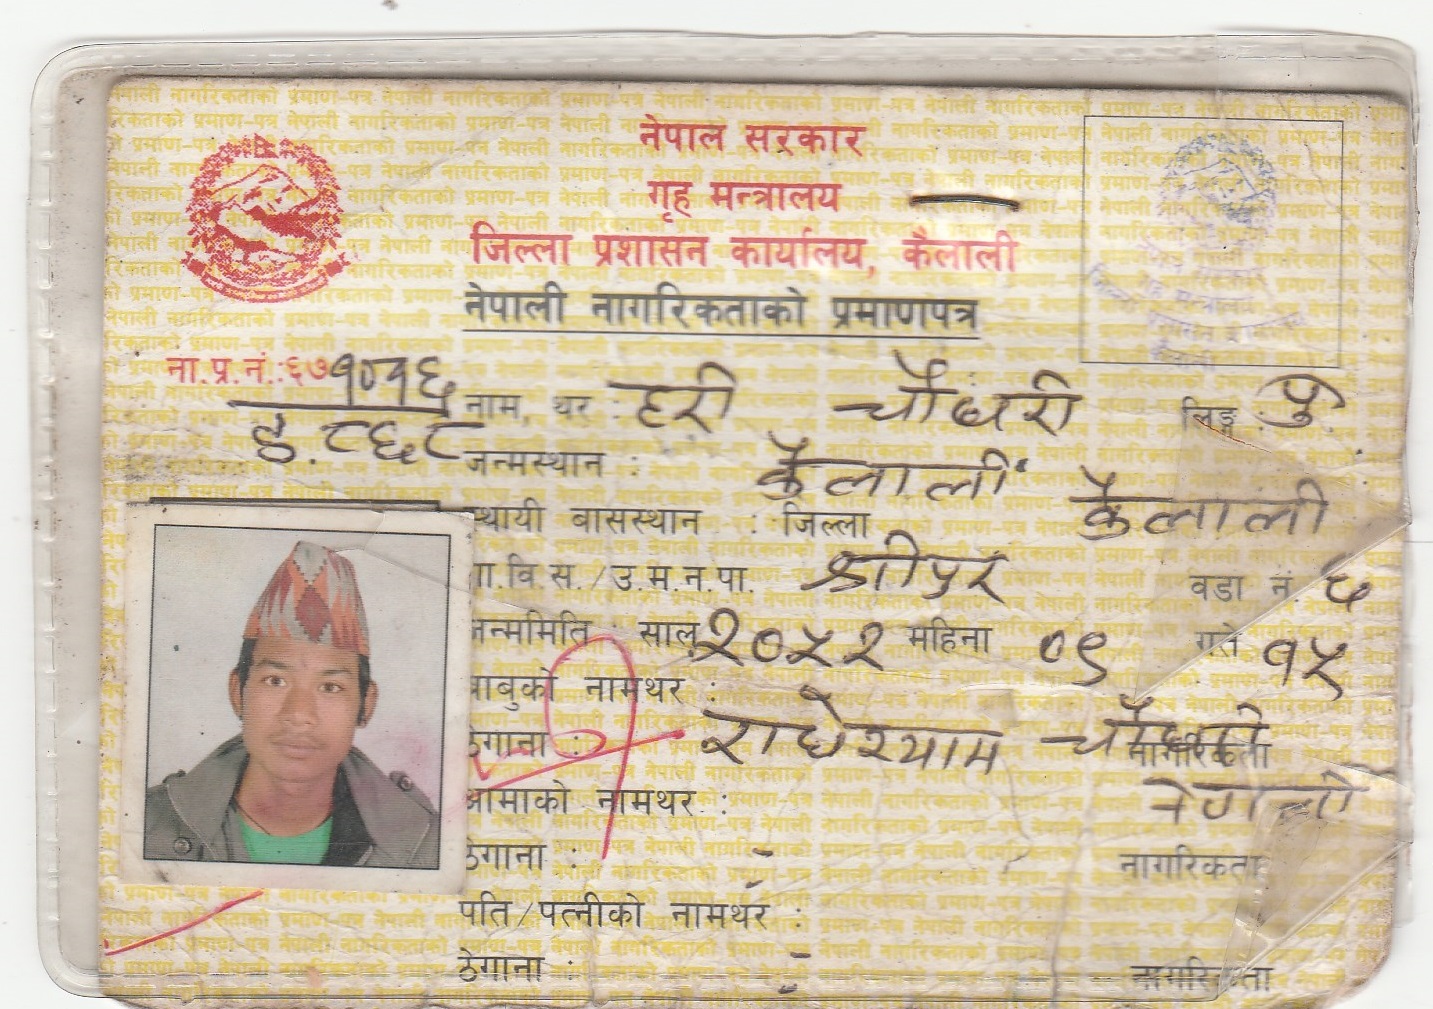 नेपाल सरकार
गृह मन्त्रालय
जिल्ला प्रशासन कार्यालय, कैलाली
नेपाली नागरिकताको प्रमाणपत्र
ना.प्र.नं.:६७१०१६
इ.८६८
नाम, थर : हरी चौधरी लिङ्ग : पु
जन्मस्थान : कैलाली
स्थायी बासस्थान : जिल्ला कैलाली
गा.वि.स./उ.म.न.पा. श्रीपुर वडा नं. ६
जन्ममिति : साल २०५२ महिना ०९ गते १५
बाबुको नामथर : राधेश्याम चौधरी
ठेगाना : नागरिकता नेपाली
आमाको नामथर :
ठेगाना : - नागरिकता
पति/पत्नीको नामथर : -
ठेगाना : - नागरिकता